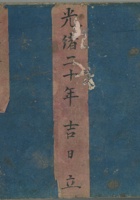 光緒二十年吉日立